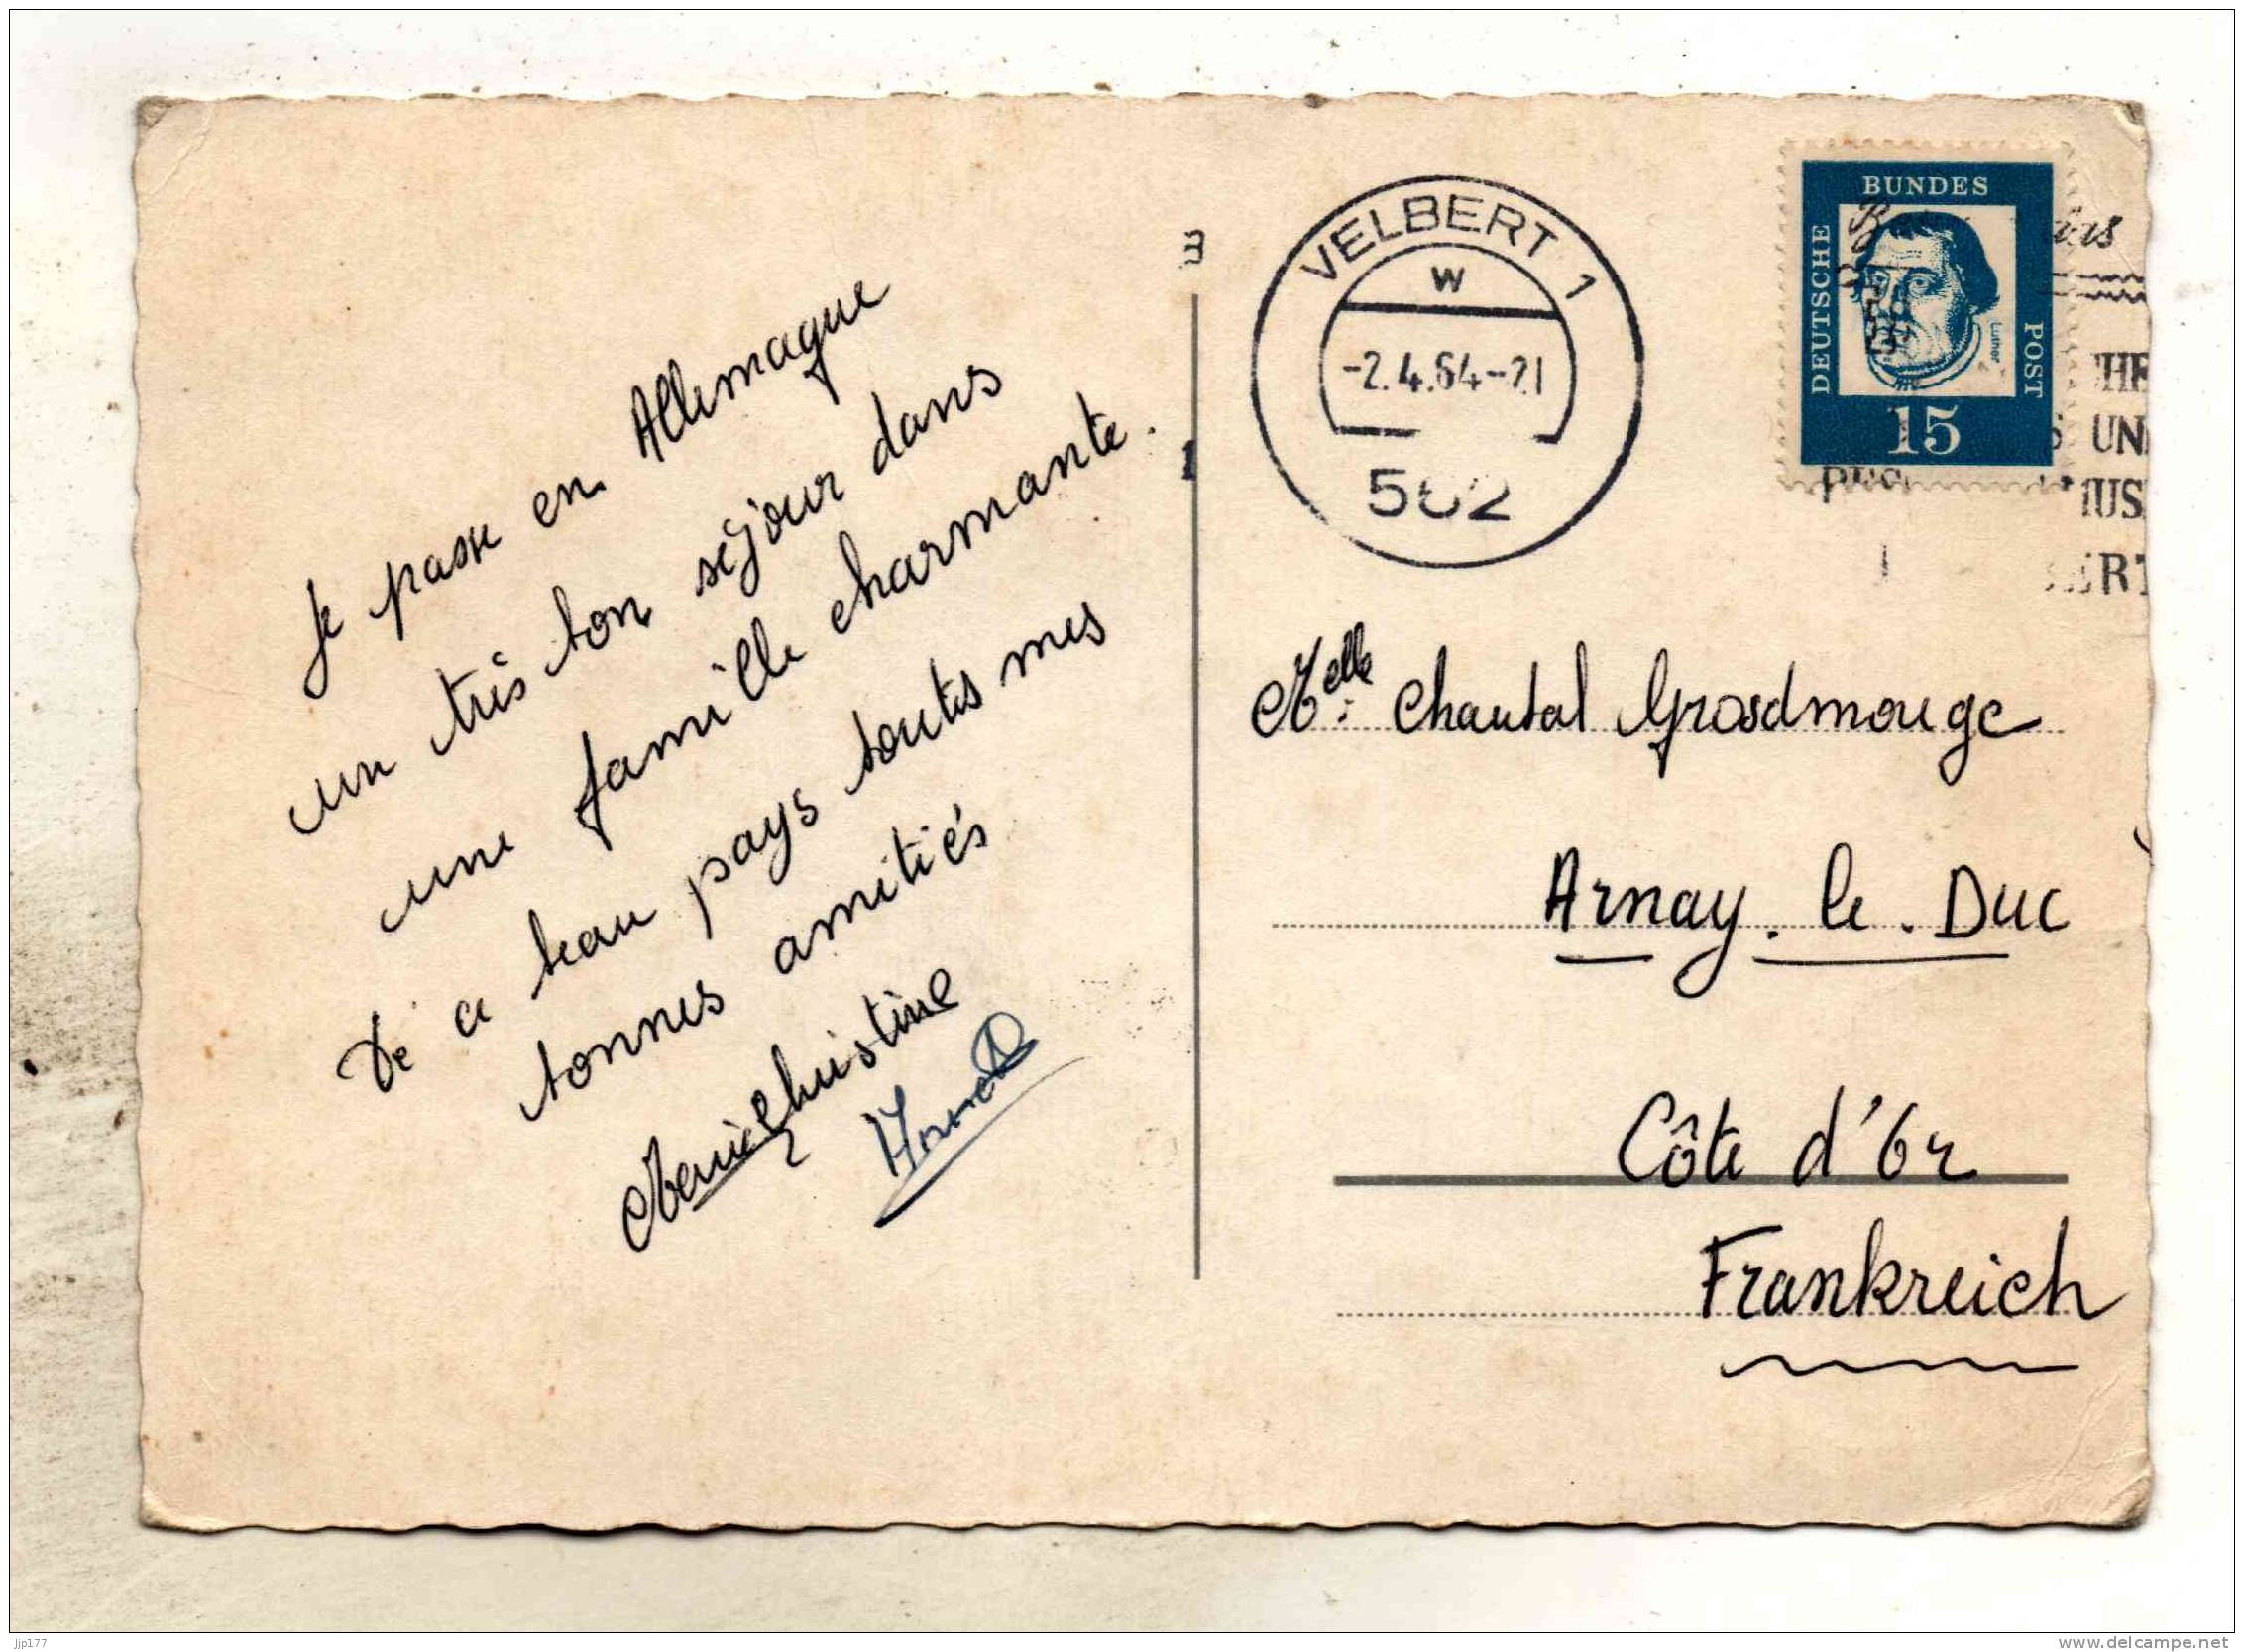 Je passe en Allemagne
un très bon séjour dans
une famille charmante.
De ce beau pays toutes mes
bonnes amitiés
Marie Christine
3
1
VELBERT 1
w
-2.4.64-21
562
BUNDES
DEUTSCHE
POST
Luther
15
UN
Melle: Chantal Grosdmouge
Arnay. le. Duc
Côte d'Or
Frankreich
jjp177
www.delcampe.net